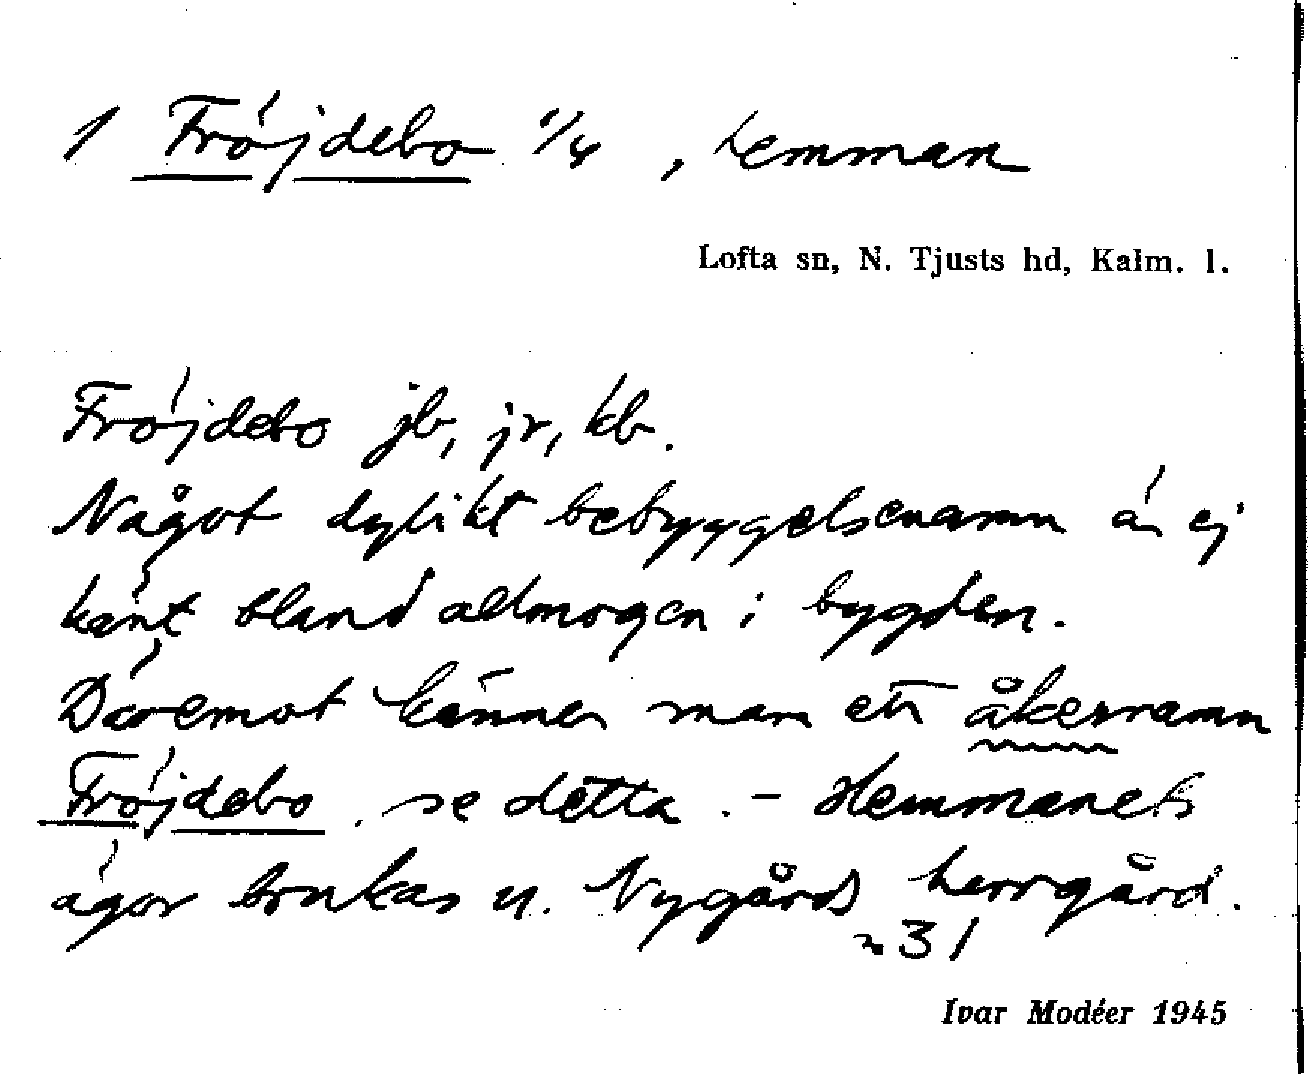 1 Fröjdebo 1/4, hemman
Lofta sn, N. Tjusts hd, Kalm. l.
Fröjdebo jb, jr, kb.
Något dylikt bebyggelsenamn är ej
känt bland allmogen i bygden.
Däremot känner man ett åkernamn
Fröjdebo, se detta. – Hemmanets
ägor brukas u. Nygårds herrgård.
n. 31
Ivar Modéer 1945